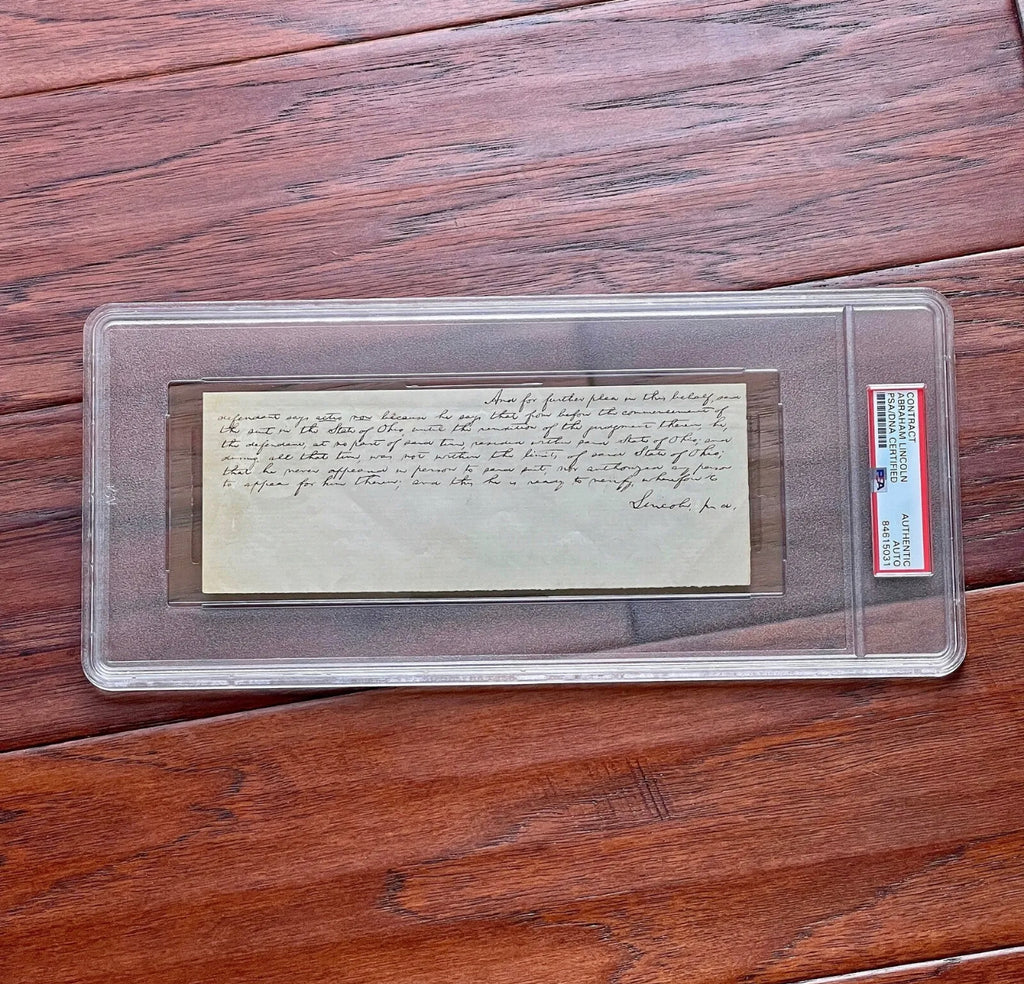 And for further plea in this behalf, said
defendant says actio non because he says that from before the commencement of
the suit in the State of Ohio until the rendition of the judgment therein, he,
the defendant, at no part of said time, resided within said State of Ohio, and
during all that time was not within the limits of said State of Ohio;
that he never appeared in person to said suit, nor authorized any person
to appear for him therein; and this he is ready to verify, wherefore &c
Lincoln, p. d.
CONTRACT
ABRAHAM LINCOLN
PSA/DNA CERTIFIED
PSA
AUTHENTIC
AUTO
84615031